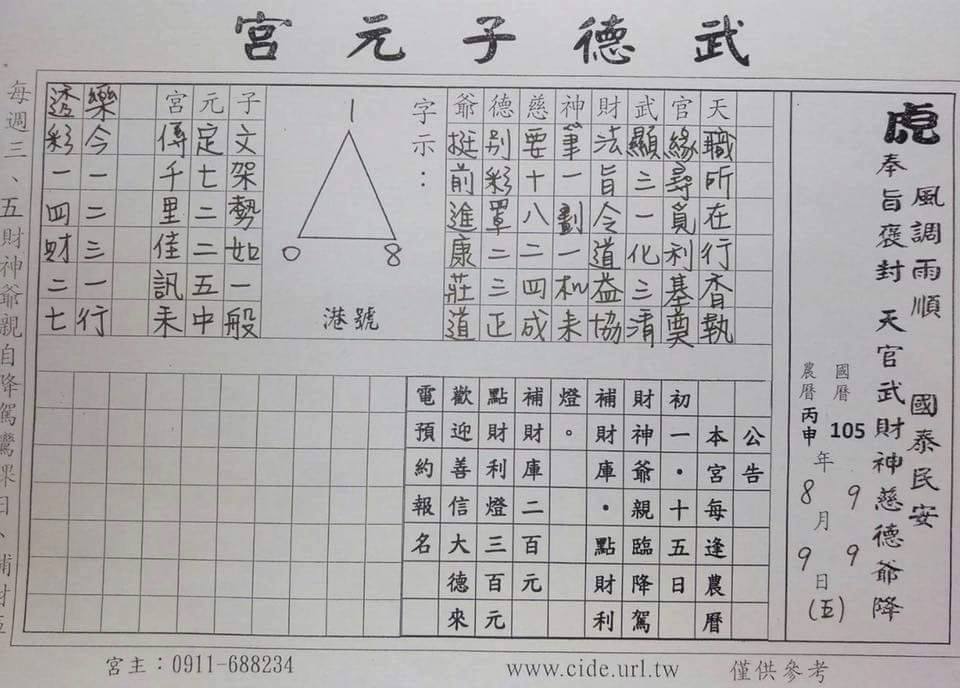 武德子元宮
虎
風調雨順 國泰民安
奉旨褒封 天官武財神慈德爺降
國曆 105 年 9 月 9 日 (五)
農曆 丙申 年 8 月 9 日
天職所在行香執
官緣尋覓利基奠
武顯三一化三清
財法旨令道益協
神筆一劃一和未
慈要十八二四成
德別彩罩二三正
爺挺前進康莊道
字示：
1
0 8
港號
子文架勢如一般
元定七二二五中
宮傳千里佳訊來
樂今一二三一行
透彩一四財二七
公告
本宮每逢農曆
初一・十五日
財神爺親臨降駕
補財庫・點財利
燈。
補財庫二百元
點財利燈三百元
歡迎善信大德來
電預約報名
每週三、五財神爺親自降駕鸞課日、補財
宮主：0911-688234
www.cide.url.tw
僅供參考